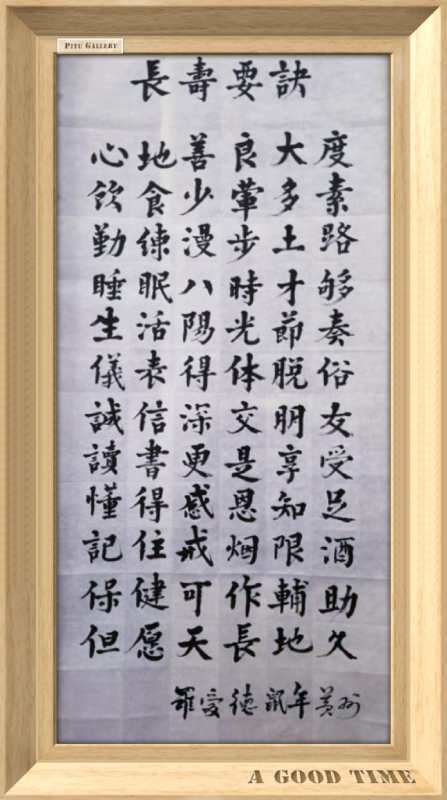 PITU GALLERY
長壽要訣
心地善良大度
飲食少葷多素
勤練漫步土路
睡眠八時才够
生活陽光節奏
儀表得体脱俗
誠信深交朋友
讀書更是享受
懂得感恩知足
記住戒烟限酒
保健可作輔助
但愿天長地久
羅愛德鼠年
A GOOD TIME